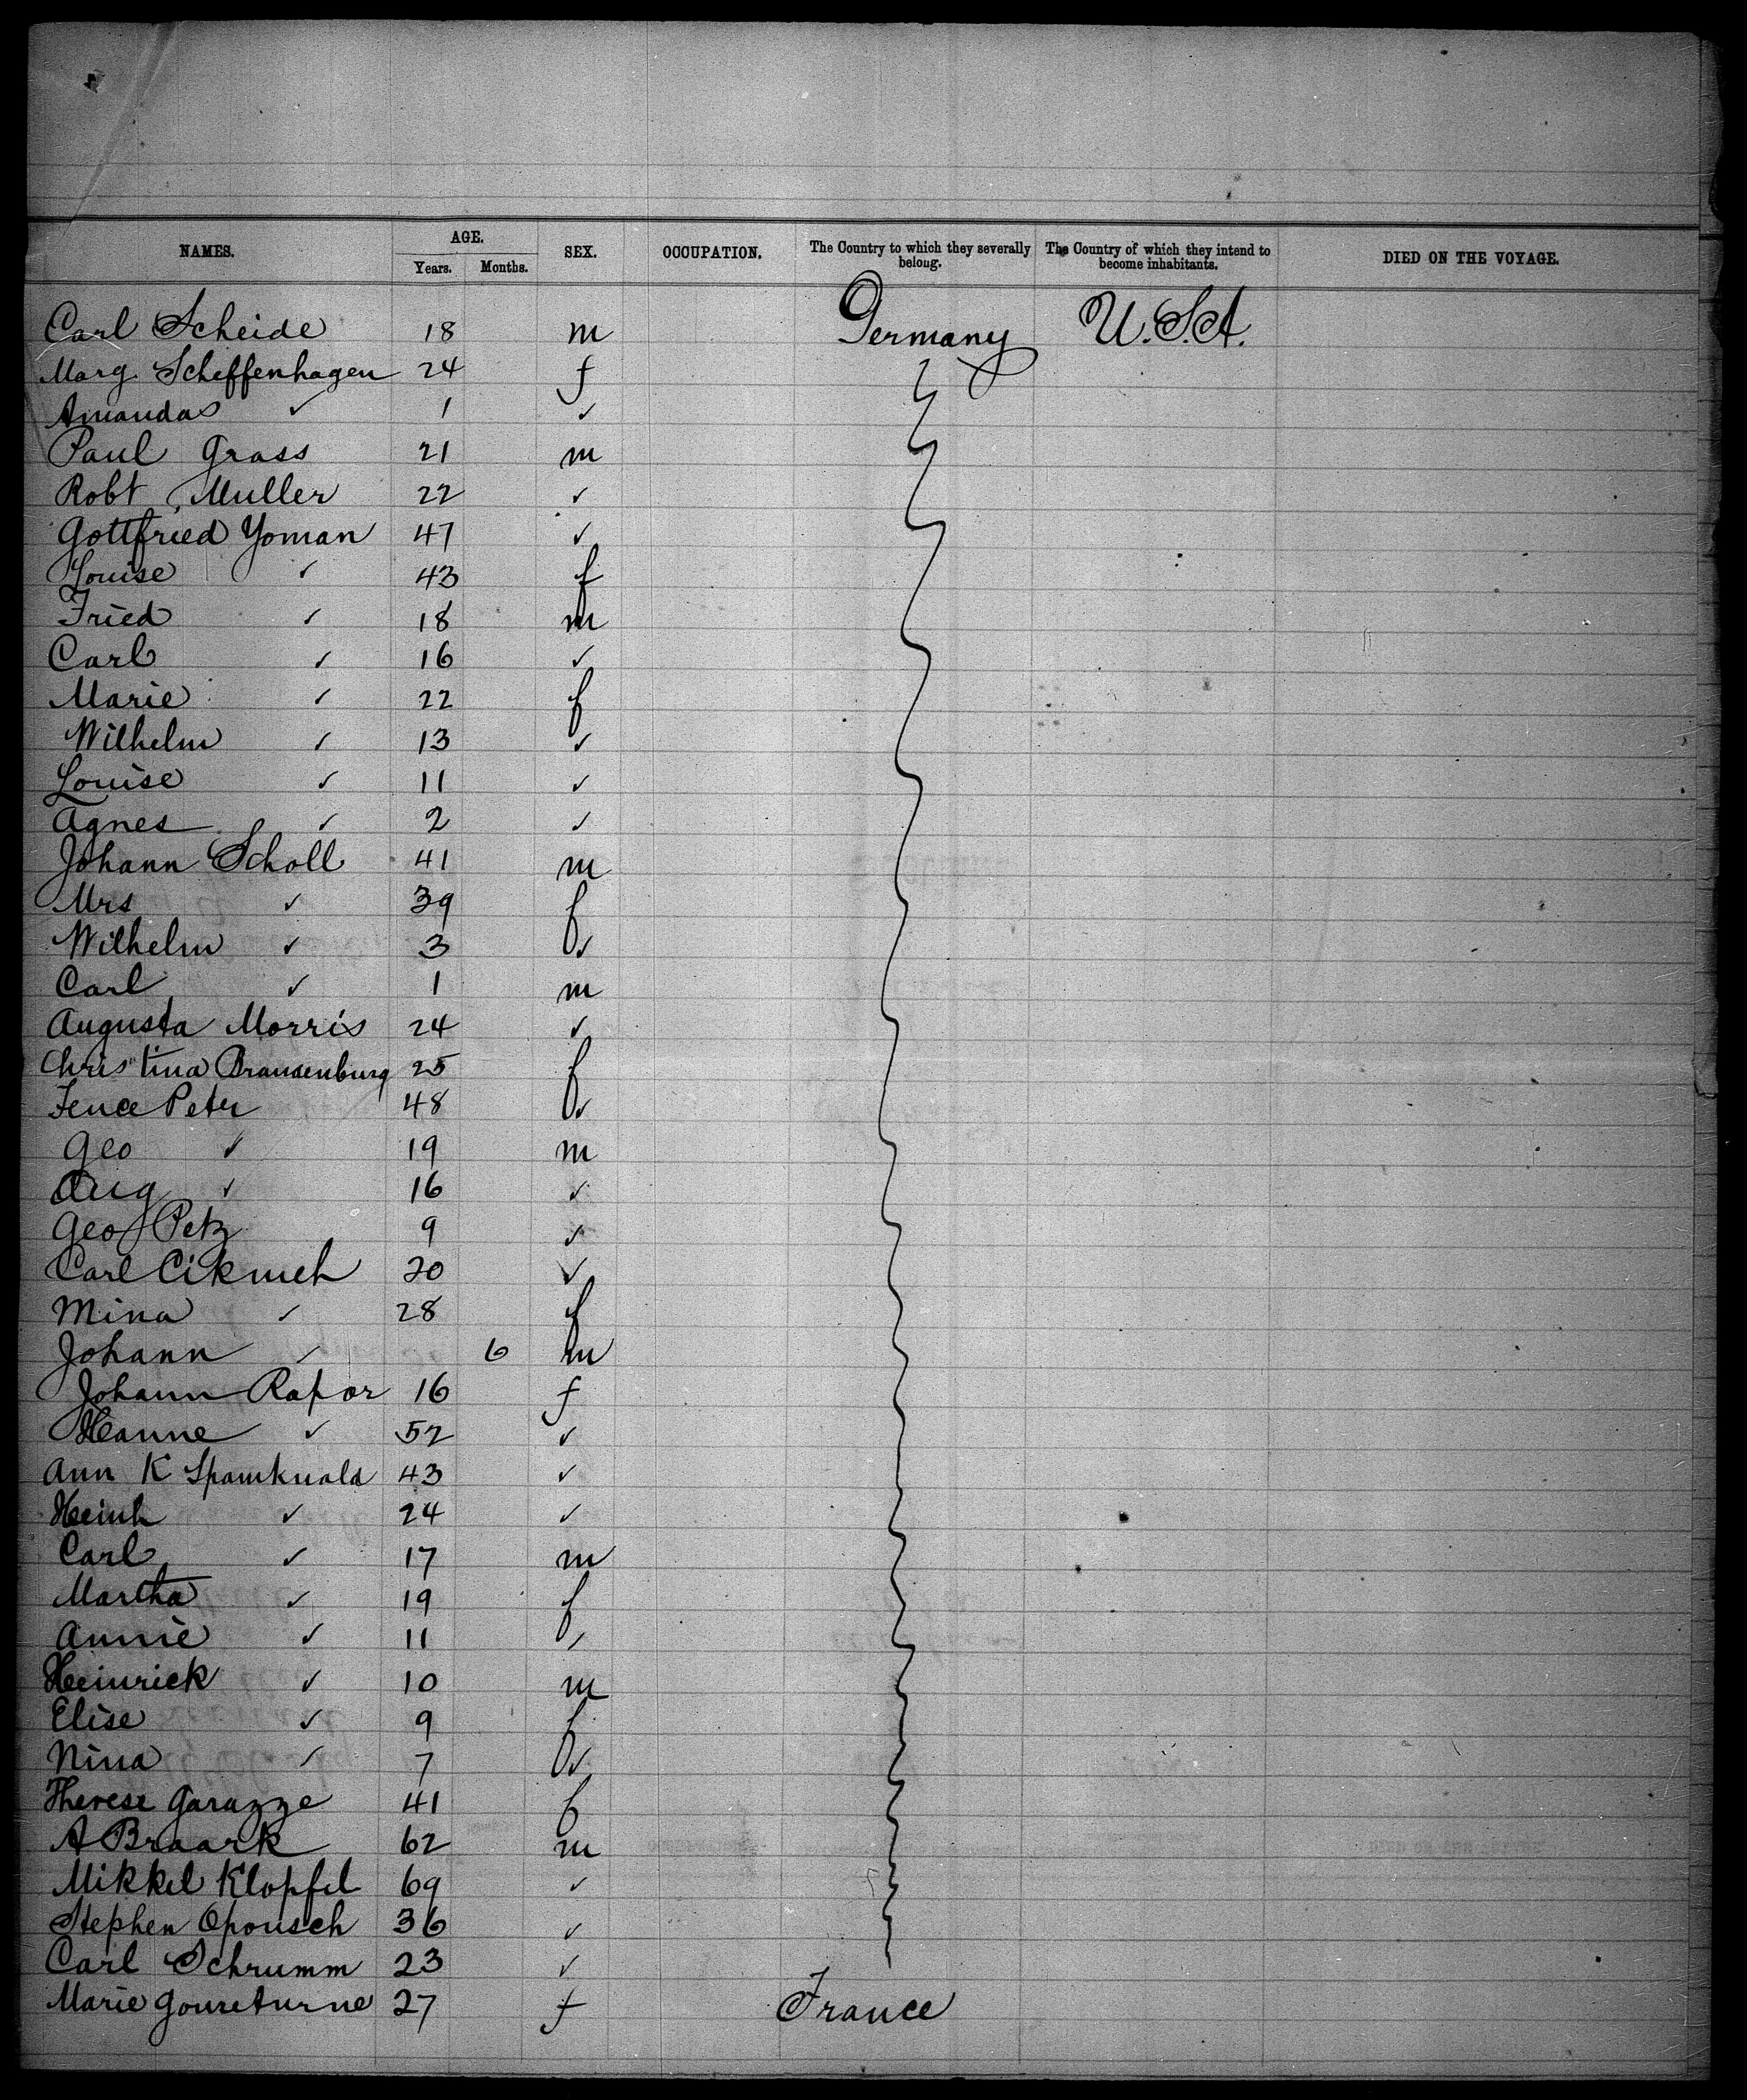 NAMES. AGE. SEX. OCCUPATION. The Country to which they severally belong. The Country of which they intend to become inhabitants. DIED ON THE VOYAGE.
Years. Months.
Carl Scheide 18 m Germany U.S.A.
Marg. Scheffenhagen 24 f
Amanda ✓ 1 ✓
Paul Grass 21 m
Robt Muller 22 ✓
Gottfried Yoman 47 ✓
Louise ✓ 43 f
Fried ✓ 18 m
Carl ✓ 16 ✓
Marie ✓ 22 f
Wilhelm ✓ 13 ✓
Louise ✓ 11 ✓
Agnes ✓ 2 ✓
Johann Scholl 41 m
Mrs ✓ 39 f
Wilhelm ✓ 3 ✓
Carl ✓ 1 m
Augusta Morris 24 ✓
Christina Brandenburg 25 f
Fence Peter 48 ✓
Geo ✓ 19 m
Aug ✓ 16 ✓
Geo Petz 9 ✓
Carl 20 ✓
Mina ✓ 28 f
Johann ✓ 6 m
Johann Rapor 16 f
Hanne ✓ 52 ✓
Ann K 43 ✓
Heinh ✓ 24 ✓
Carl ✓ 17 m
Martha ✓ 19 f
Annie ✓ 11 ✓
Heinrick ✓ 10 m
Elise ✓ 9 f
Nina ✓ 7 ✓
Therese Garazze 41 f
A Braark 62 m
Mikkel Klopfel 69 ✓
Stephen Oponsch 36 ✓
Carl Schrumm 23 ✓
Marie 27 f France